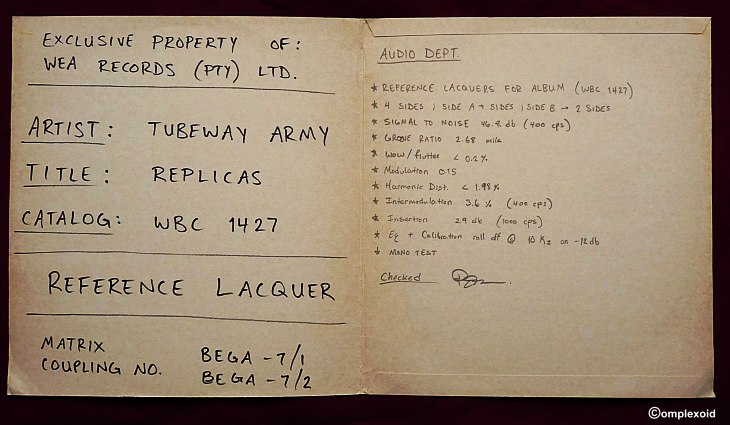 EXCLUSIVE PROPERTY OF:
WEA RECORDS (PTY) LTD.
ARTIST: TUBEWAY ARMY
TITLE: REPLICAS
CATALOG: WBC 1427
REFERENCE LACQUER
MATRIX
COUPLING NO.
BEGA-7/1
BEGA-7/2
AUDIO DEPT.
* REFERENCE LACQUERS FOR ALBUM (WBC 1427)
* 4 SIDES ; SIDE A → SIDES ; SIDE B → 2 SIDES
* SIGNAL TO NOISE 46.8 db (400 cps)
* GROOVE RATIO 2.68 mils
* Wow/flutter < 0.2%
* Modulation 0.15
* Harmonic Dist. < 1.98%
* Intermodulation 3.6% (400 cps)
* Insertion 29 db (1000 cps)
* Eq + Calibration roll off @ 10 Kz on -12db
* MONO TEST
Checked
©omplexoid